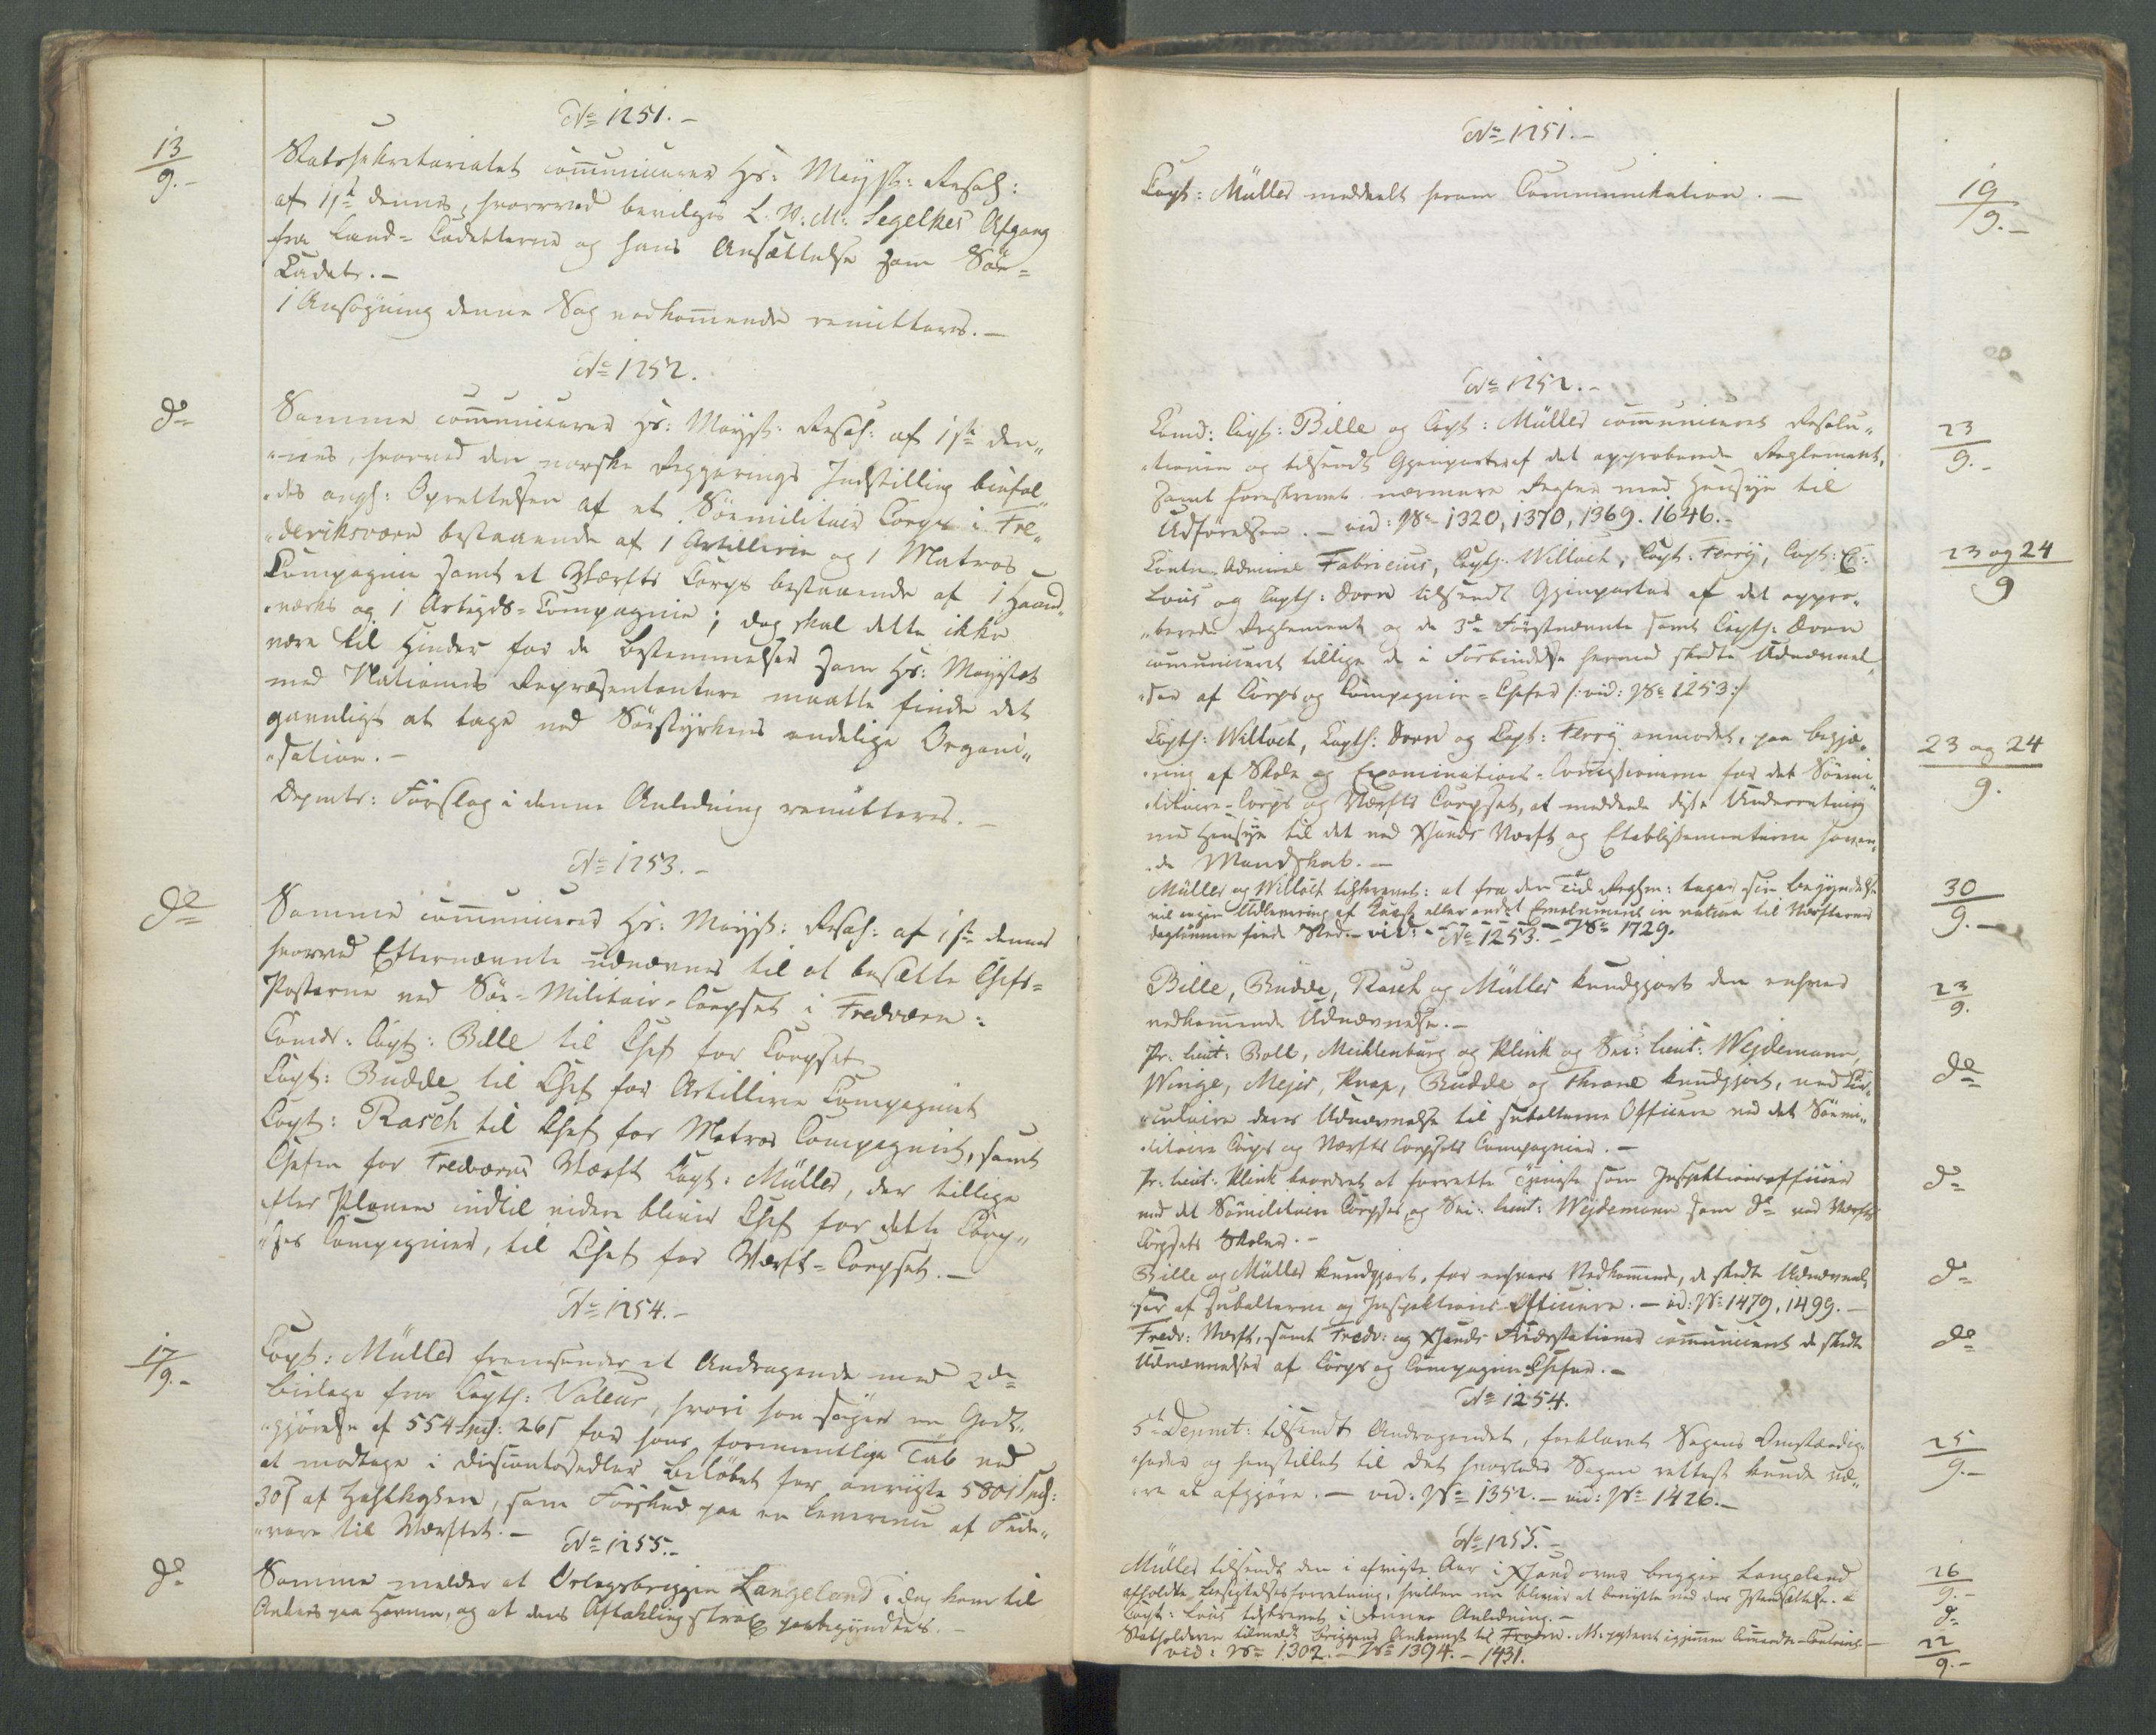 No 1251.-
13/9.- Statssekretariatet communicerer Hs: Mayst: Resol:
af 11te dennes, hvorved bevilges L. W. M. Segelkes Afgang
fra Land-Cadetterne og hans Ansættelse som Söe-
Cadet.-
1 Ansøgning denne Sag vedkommende remitteres.-
No 1252.
do Samme communicerer Hs: Mayst: Resol: af 1ste den„
„nes, hvorved den norske Regjerings Indstilling bifal„
„des angl: Oprettelsen af et Söemilitair Corps i Fre„
„deriksværn bestaaende af 1 Artillerie og 1 Matros
Compagnie samt et Værfts Corps bestaaende af 1 Haand„
„værks og 1 Arbejds-Compagnie; dog skal dette ikke
være til Hinder for de Bestemmelser som Hs: Mayestæt
med Nationens Repræsentantere maatte finde det
gavnligt at tage ved Söestyrkens endelige Organi„
„sation.-
Depmts: Forslag i denne Anledning remitteres.-
No 1253.-
do Samme communicerer Hs: Mayst: Resol: af 1ste dennes
hvorved Efternævnte udnævnes til at besætte Chefs-
Posterne ved Söe-Militair-Corpset i Fredværn:
Comdr: Capt: Bille til Chef for Corpset
Capt: Budde til Chef for Artillerie Compagniet
Capt: Rasch til Chef for Matros Compagniet, samt
Chefen for Fredværns Værft Capt: Müller, der tillige
efter Planen indtil videre bliver Chef for dette Corp„
„ses Compagnier, til Chef for Værft-Corpset.-
No 1254.-
17/9.- Capt: Müller fremsender et Andragende med 2de
Bielage fra Capth: Valeur, hvori han søger en Godt„
„gjørelse af 554 Spd: 26 for hans formentlige Tab ved
at modtage i Discontosedler Beløbet for 5801 Spd:
30 af som Forskud paa en Leverence af
„vare til Værftet.-
No 1255.-
do Samme melder at Orlogsbriggen Langeland i dag kom til
Ankers paa Havnen, og at dens Aftakling strax paabegyndtes.-
No 1251.-
Capt: Müller meddeelt herom Communikation.- 19/9.-
No 1252.-
Comd: Capt: Bille og Capt: Müller communiceret Resolu„ 23/9.-
„tionen og tilsendt Gjenparter af det approberede Reglement,
samt foreskrevet nærmere Regler med Hensyn til
Udførelsen.- vid: No 1320, 1370, 1369. 1646.-
Contre-Admiral Fabricius, Capth: Willoch, Capt: Ferrÿ, Capt: C: 23 og 24/9
Lous og Capth: Dorn tilsendt Gjenparter af det appro„
„berede Reglement og de 3de Førstnævnte samt Capth: Dorn
communiceret tillige de i Forbindelse hermed skedte Udnævnel„
„ser af Corps og Compagnie-Chefer /:vid: No 1253:/
Capth: Willoch, Capth: Dorn og Capt: Ferrÿ anmodet, paa Begjæ„ 23 og 24/9.
„ring af Skole og Examinations-Commissionerne for det Söemi„
„litaire-Corps og Værfts Corpset, at meddeele disse Underretning
med Hensyn til det ved Xsands Værft og Etablissementerne haven„
„de Mandskab.-
Müller og Willoch tilskrevet: at fra den Tid Reglem: tager sin Begyndelse 30/9.-
vil ingen Udlevering af eller andet Emolument in natura til Værfternes
daglönnere finde Sted.- vid: No 1729.
No 1253.-
Bille, Budde, Rasch og Müller kundgjort den enhver 23/9.
vedkommende Udnævnelse.-
Pr: Lieut: Boll, Mecklenburg og Klink og Sec: Lieut: Wejdemann, do
Winge, Mejer, Knap, Budde og Thrane kundgjort, ved Cir„
„culaire deres Udnævnelse til subalterne Officerer ved det Söemi„
„litaire Corps og Værfts Corpsets Compagnier.-
Pr: Lieut: Klink beordret at forrette Tjeneste som Inspektionsofficier do
ved det Söemilitaire Corpses og Sec: Lieut: Wejdemann som do ved Værfts
Corpsets Skoler.-
Bille og Müller kundgjort, for enhvers Vedkommende, de skedte Udnævnel„ do
„ser af subalterne og Inspektions-Officierer.- vid: No 1479, 1499.-
Fredv: Værft, samt Fredv: og Xsands communiceret de skedte do
Udnævnelser af Corps og Compagnie Chefer.-
No 1254.
5te Depmt: tilsendt Andragendet, forklaret Sagens Omstændig„ 25/9.-
„heder og henstillet til det hvorledes Sagen rettest kunde væ„
„re at afgjøre.- vid: No 1352.- vid: No 1426.-
No 1255.-
Müller tilsendt den i afvigte Aar i Xsand over Briggen Langeland 26/9.-
afholdte Besigtelsesforretning, hvilken nu bliver at benytte ved dens Istandsættelse.-
Capt: Lous tilskrevet i denne Anledning.- do
Statholderen tilmeldt Briggens Ankomst til Fredværn. 22/9.-
vid: No 1302.- No 1394.- 1431.